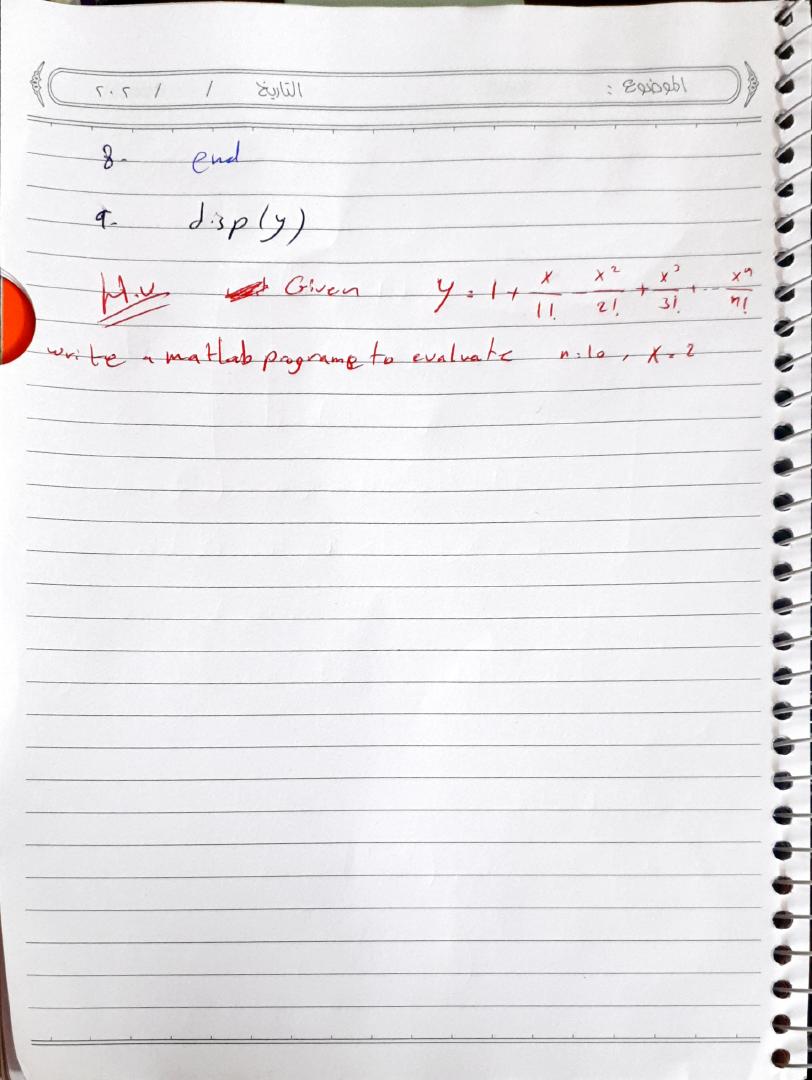 الموضوع : التاريخ / / ٢٠٢
8- end
9- disp(y)
H.W Given y = 1 + x/1! x²/2! + x³/3! + ... xⁿ/n!
write a matlab programe to evaluate n=10 , x=2